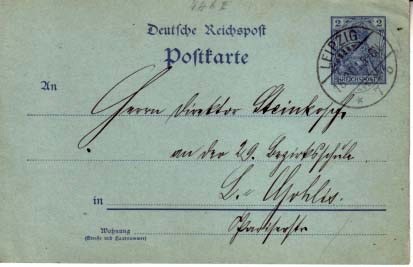 2 2
Deutsche Reichspost
Postkarte
LEIPZIG
REICHSPOST
An
Herrn Direktor Steinkopf
an der 29. Bezirksschule
in L. Gohlis.
Wohnung
(Straße und Hausnummer)